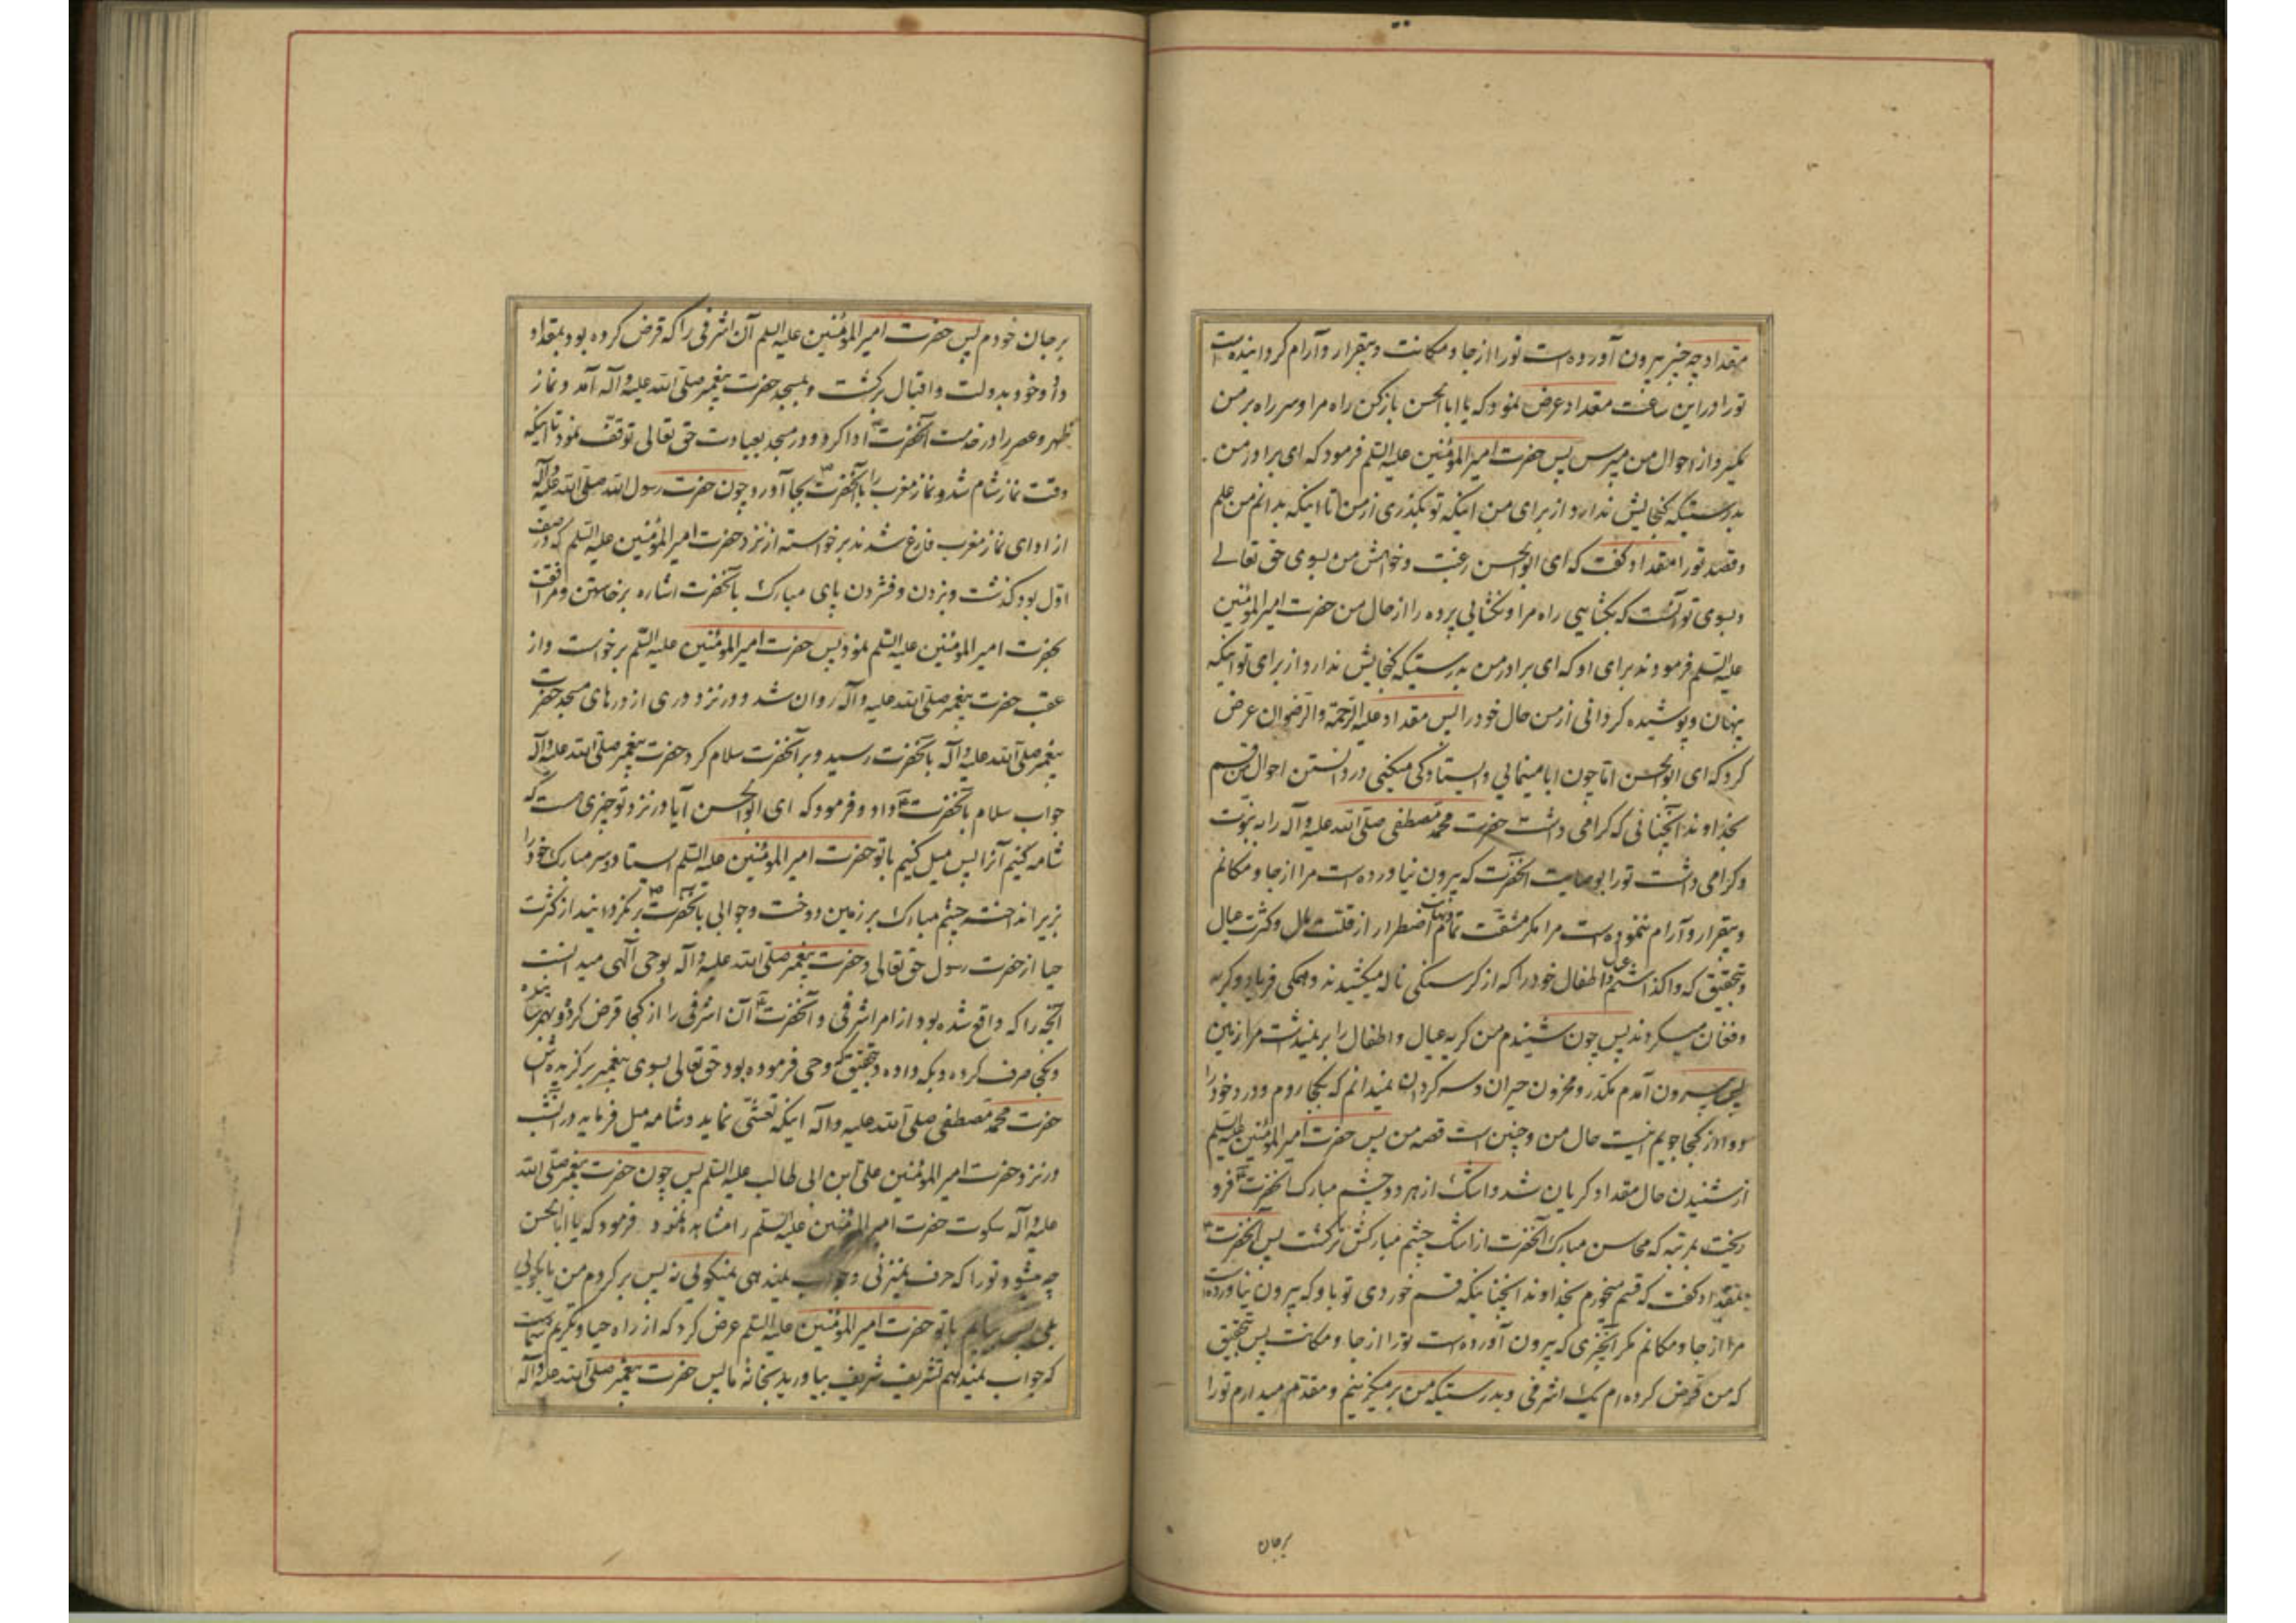 مقداد چه چیز بیرون آورده است تو را از جا و مکانت و بیقرار و آرام کردانیده است
تو را در این ساعت مقداد عرض نمود که یا ابا الحسن بازکن راه مرا و سر راه بر من
مگیر و از احوال من مپرس پس حضرت امیر المؤمنین علیه السلم فرمود که ای برادر من
بدرستیکه گنجایش ندارد از برای من اینکه تو بگذری از من تا اینکه بدانم من علم
و قصد تو را مقداد گفت که ای ابو الحسن رغبت و خواهش من بسوی حق تعالی
و بسوی تو آنست که بگشایی راه مرا و نگشایی پرده را از حال من حضرت امیر المؤمنین
علیه السلم فرمودند برای او که ای برادر من بدرستیکه گنجایش ندارد از برای تو اینکه
پنهان و پوشیده کردانی از من حال خود را پس مقداد علیه الرحمة و الرضوان عرض
کرد که ای ابو الحسن اما چون ابا مینمایی و ایستادگی میکنی در دانستن احوال من قسم
بخداوند آنچنانی که کرامی داشت حضرت محمد مصطفی صلی الله علیه و آله را به نبوت
و کرامی داشت تو را بوصایت آنحضرت که بیرون نیاورده است مرا از جا و مکانم
و بیقرار و آرام ننموده است مرا مگر مشقت تمام و نهایت اضطرار از قلت مال و کثرت عیال
و بتحقیق که واگذاشتم عیال و اطفال خود را که از کرسنگی ناله میکشیدند و همکی فریاد و کریه
و فغان میکردند پس چون شنیدم من کریه عیال و اطفال را بر نمیداشت مرا زمین
پس بیرون آمدم مکدر و محزون حیران و سرکردان نمیدانم که بکجا روم و درد خود را
دوا از کجا جویم اینست حال من و چنین است قصه من پس حضرت امیر المؤمنین علیه السلم
از شنیدن حال مقداد کریان شد و اشک از هر دو چشم مبارک آنحضرت فرو
ریخت بمرتبه که محاسن مبارک آنحضرت از اشک چشم مبارکش تر گشت پس آنحضرت
بمقداد گفت که قسم میخورم بخداوند آنچنانیکه قسم خوردی تو باو که بیرون نیاورده است
مرا از جا و مکانم مگر آنچیزی که بیرون آورده است تو را از جا و مکانت پس بتحقیق
که من قرض کرده ام یک اشرفی و بدرستیکه من بر میگزینم و مقدم میدارم تو را
برجان
بر جان خودم پس حضرت امیر المؤمنین علیه السلم آن اشرفی را که قرض کرده بود بمقداد
داد و خود بدولت و اقبال برگشت و بمسجد حضرت پیغمبر صلی الله علیه و آله آمد و نماز
ظهر و عصر را در خدمت آنحضرت ادا کرد و در مسجد بعبادت حق تعالی توقف نمود تا اینکه
وقت نماز شام شد و نماز مغرب را با آنحضرت بجا آورد و چون حضرت رسول الله صلی الله علیه و آله
از ادای نماز مغرب فارغ شدند برخواسته از نزد حضرت امیر المؤمنین علیه السلم که در صف
اول بود گذشت و بزدن و فشردن پای مبارک بآنحضرت اشاره برخاستن و مرافقت
بحضرت امیر المؤمنین علیه السلم نمود پس حضرت امیر المؤمنین علیه السلم برخواست و از
عقب حضرت پیغمبر صلی الله علیه و آله روان شد و در نزد دری از درهای مسجد حضرت
پیغمبر صلی الله علیه و آله بآنحضرت رسید و بر آنحضرت سلام کرد حضرت پیغمبر صلی الله علیه و آله
جواب سلام بآنحضرت داد و فرمود که ای ابو الحسن آیا در نزد تو چیزی هست که
شامه کنیم آنرا پس میل کنیم با تو حضرت امیر المؤمنین علیه السلم ایستاد و سر مبارک خود را
بزیر انداخت چشم مبارک بر زمین دوخت و جوابی بآنحضرت بر نگردانید از کثرت
حیا از حضرت رسول حق تعالی و حضرت پیغمبر صلی الله علیه و آله بوحی الهی میدانست
آنچه را که واقع شده بود از امر اشرفی و آنحضرت آن اشرفی را از کجا قرض کرده و بهم رسانیده
و بکجا صرف کرده و بکه داده و بتحقیق که وحی فرموده بود حق تعالی بسوی پیغمبر برگزیده اش
حضرت محمد مصطفی صلی الله علیه و آله اینکه تعشی نماید و شامه میل فرماید در آنشب
در نزد حضرت امیر المؤمنین علی ابن ابی طالب علیه السلم پس چون حضرت پیغمبر صلی الله
علیه و آله سکوت حضرت امیر المؤمنین علیه السلم را مشاهده نمود فرمود که یا ابا الحسن
چه میشود تو را که حرف نمیزنی و جواب نمیدهی نمیگوئی نه پس برگردم من یا بگوئی
بلی پس بیایم با تو حضرت امیر المؤمنین علیه السلم عرض کرد که از راه حیا و تکریم شماست
که جواب نمیدهم تشریف شریف بیاورید بخانه ما پس حضرت پیغمبر صلی الله علیه و آله